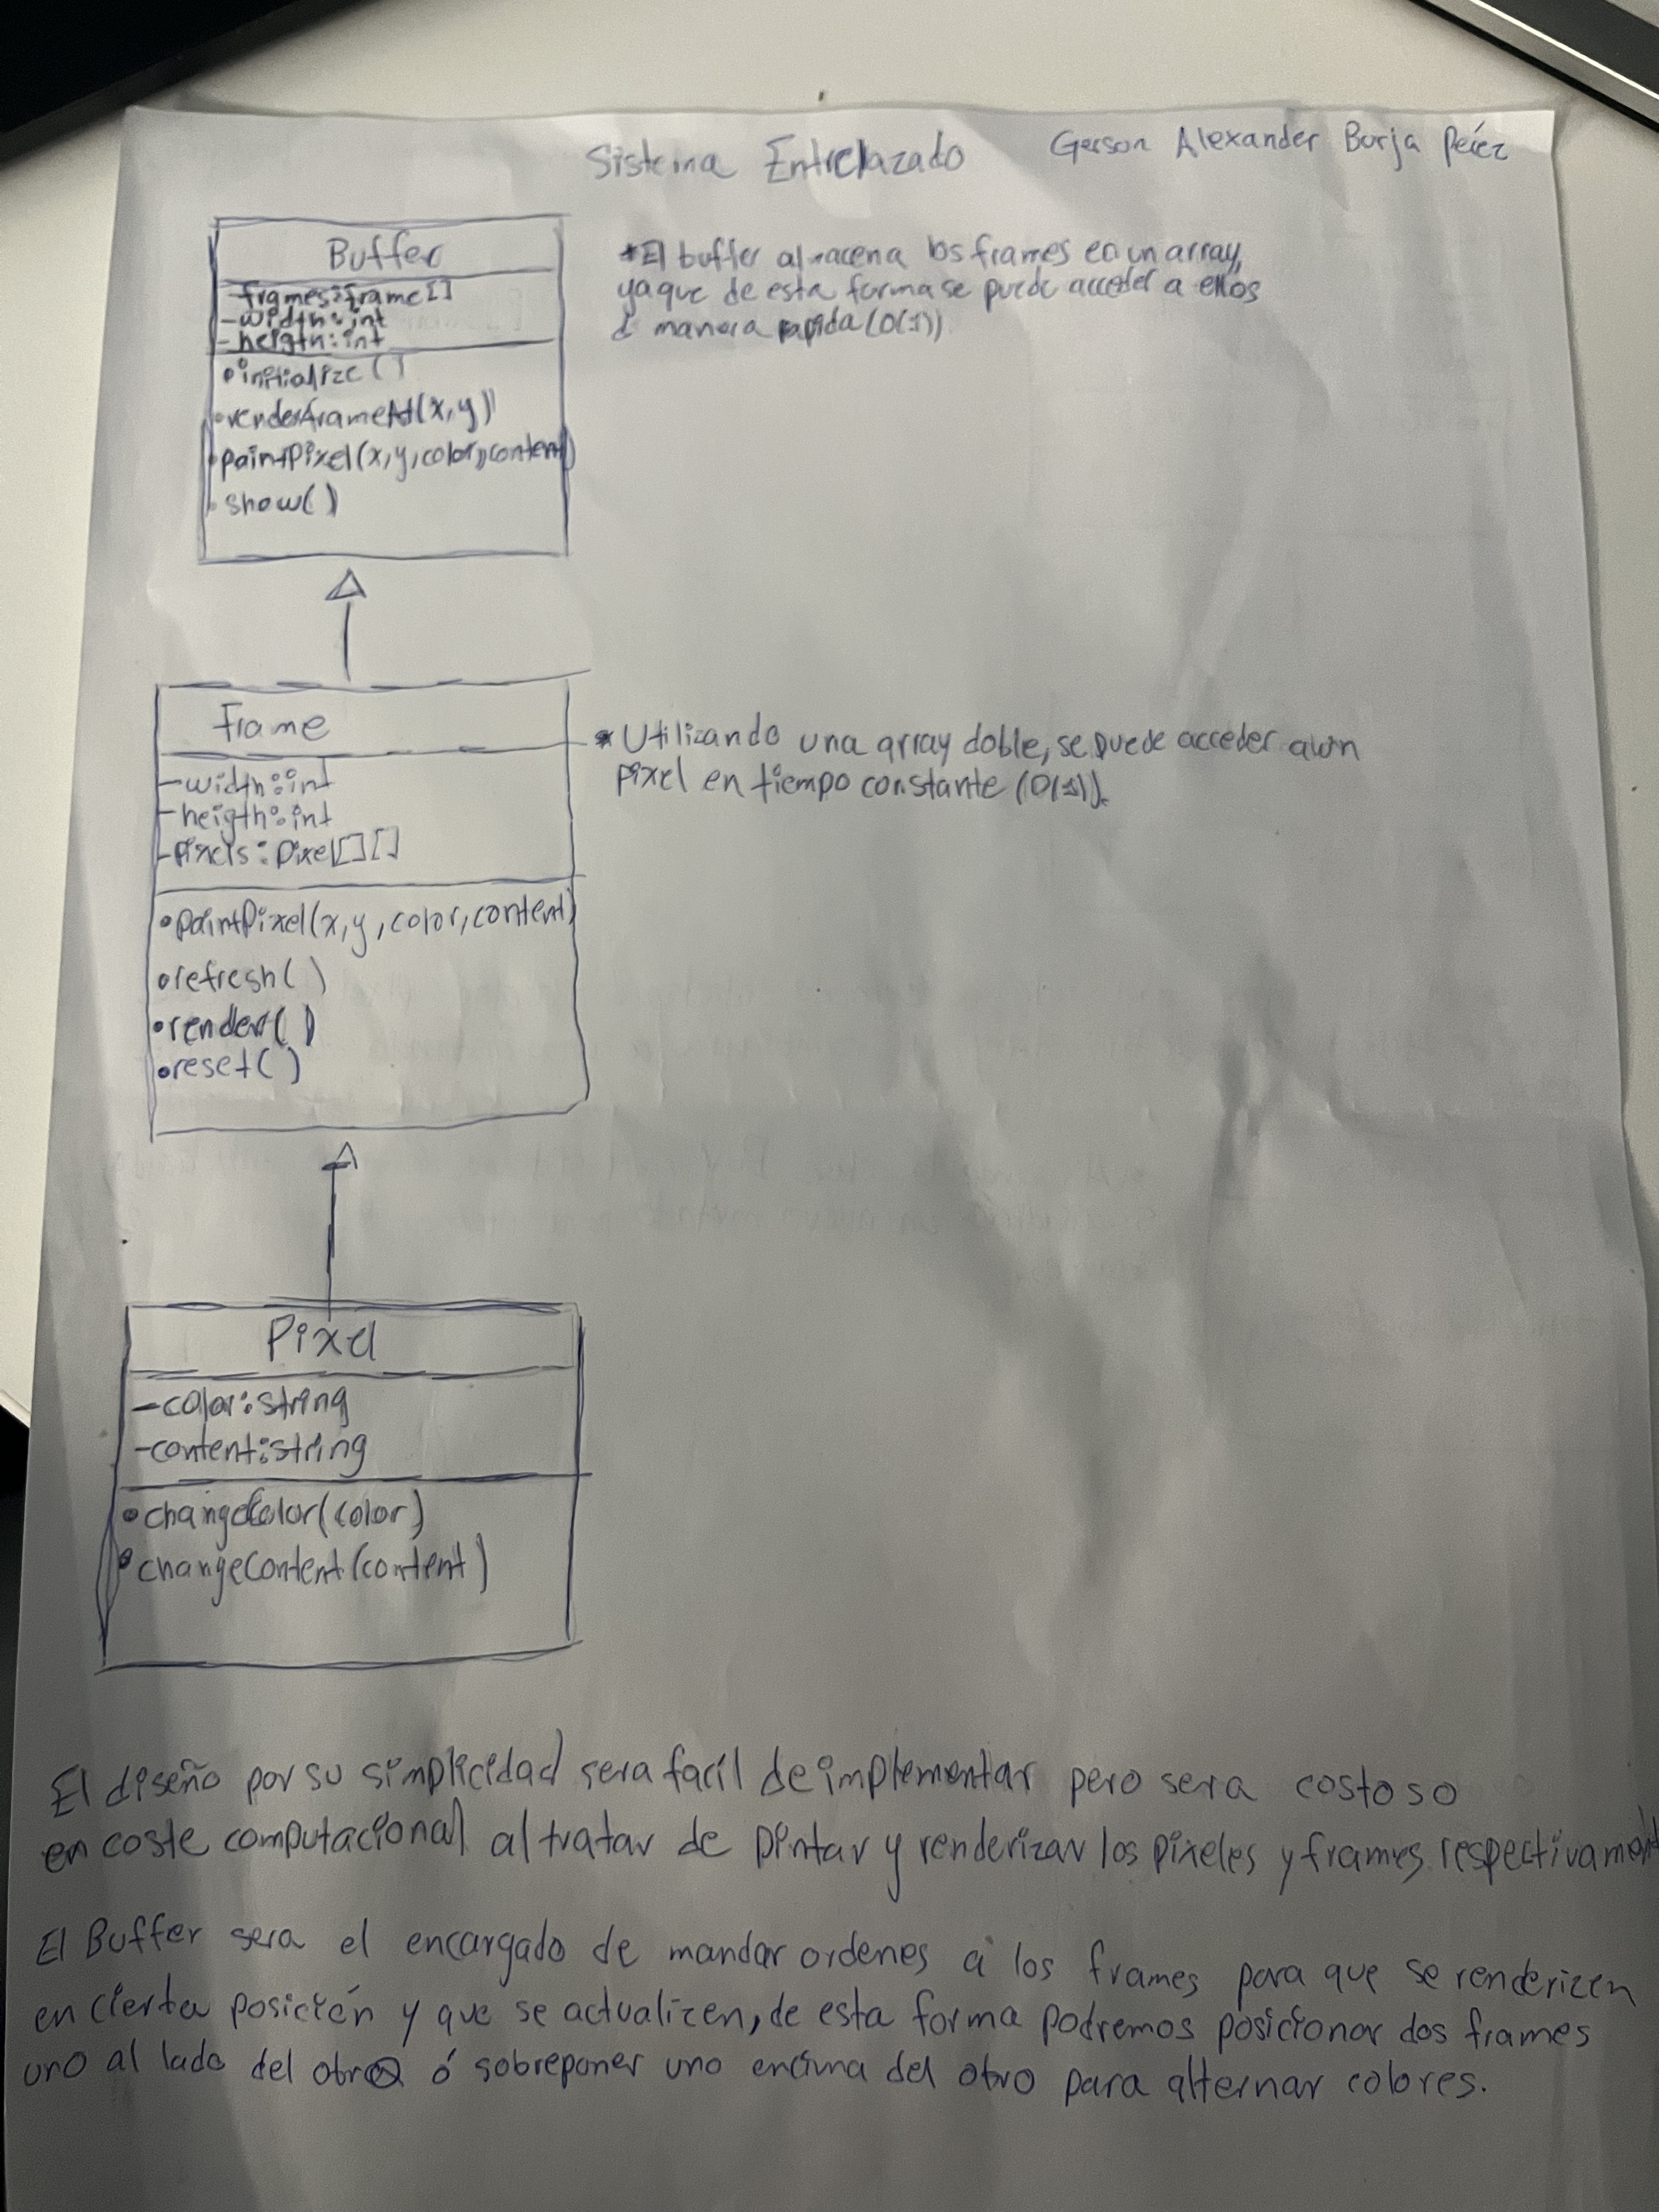 Sistema Entrelazado
Gerson Alexander Borja Peréz
Buffer
-frames:frame[]
-width:int
-heigth:int
•initialize()
•renderframeAt(x,y)
•paintPixel(x,y,color,content)
•show()
*El buffer almacena los frames en un array,
yaque de esta forma se puede acceder a ellos
d manera rapida (O(1)).
Frame
-width:int
-heigth:int
-pixels:pixel[][]
•paintPixel(x,y,color,content)
•refresh()
•render()
•reset()
*Utilizando una array doble, se puede acceder a un
pixel en tiempo constante (O(1)).
Pixel
-color:string
-content:string
•changeColor(color)
•changeContent(content)
El diseño por su simplicidad sera facil de implementar pero sera costoso
en coste computacional al tratar de pintar y renderizar los pixeles y frames respectivament
El Buffer sera el encargado de mandar ordenes a los frames para que se renderizen
en cierta posición y que se actualizen, de esta forma podremos posicionar dos frames
uno al lado del otro ó sobreponer uno encima del otro para alternar colores.